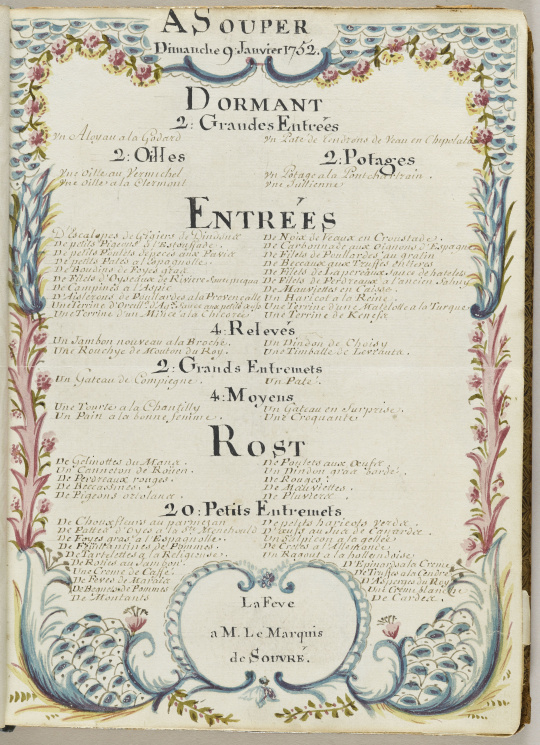 A SOUPER
Dimanche 9 Janvier 1752.
DORMANT
2: Grandes Entrées
Un Aloyau a la Godard
Un Pate de tendrons de Veau en Chipolata
2: Oilles
2: Potages
Une Oille au Vermichel
Un Potage a la Pontchartrain.
Une Oille a la Clermont
Une Jullienne
ENTRÉES
D'Escalopes de Gisiers de Dindonx
De Noix de Veaux en Croustade.
De petits Pigeons a l'Estouffade
De Carbonnade aux Oignons d'Espagne
De petits Poulets
De Filets de Poullardes au gratin
De petits Pates a l'Espagnolle
De Beccaux aux Truffes Entieres
De Boudins de Foyes gras
De Filets de Lapereaux sauce de hatelets
De Filets d'Oyseaux de Riviere
De Filets de Perdreaux a l'ancien Salmy
De l'Aspic
De Mauviettes en Caisse
D'Aislerons de Poullardes a la Provençalle
Un Haricot a la Reine
Une Terrine
Une Terrine d'une Matelotte a la Turque
Une Terrine d'un a la Chicorée
Une Terrine de Kenelx
4: Relevés
Un Jambon nouveau a la Broche.
Un Dindon de Choisy
Une Ronchye de Mouton du Roy.
Une Timballe de Levrautx.
2: Grands Entremets
Un Gateau de Compiegne.
Un Paté.
4: Moyens
Une Tourte a la Chantilly
Un Gateau en Surprise.
Un Pain a la bonne femme.
Une Croquante.
ROST
De Gelinottes du Mans.
De Poulets aux Oeufs
Un Canneton de Roüen
Un Dindon gras bardé.
De Perdreaux rouges.
De Rouges.
De Beccassines.
De Mauviettes.
De Pigeons ortolans.
De Pluvierx.
20: Petits Entremets
De Chouxfleurs au parmesan
De petits haricots verds.
De Pattes d'Oyes a la Ste. Menehould
D'Oeufs au Jus
De Foyes gras a l'Espagnolle.
Un Salpicon a la gellée
De Pommes.
De Cretes a l'Allemande
De Tartelettes a la Religieuse.
Un Ragout a la hollandoise
De Roties au Jambon.
D'Epinards a la Creme
Une Creme de Caffé
De Truffes a la Cendre
De Feves de Marais
D'Asperges du Roy
De Beignets de Pommes
Une Creme blanche
De Montants
De Cardes.
La Feve
a M. Le Marquis
de SOUVRÉ.